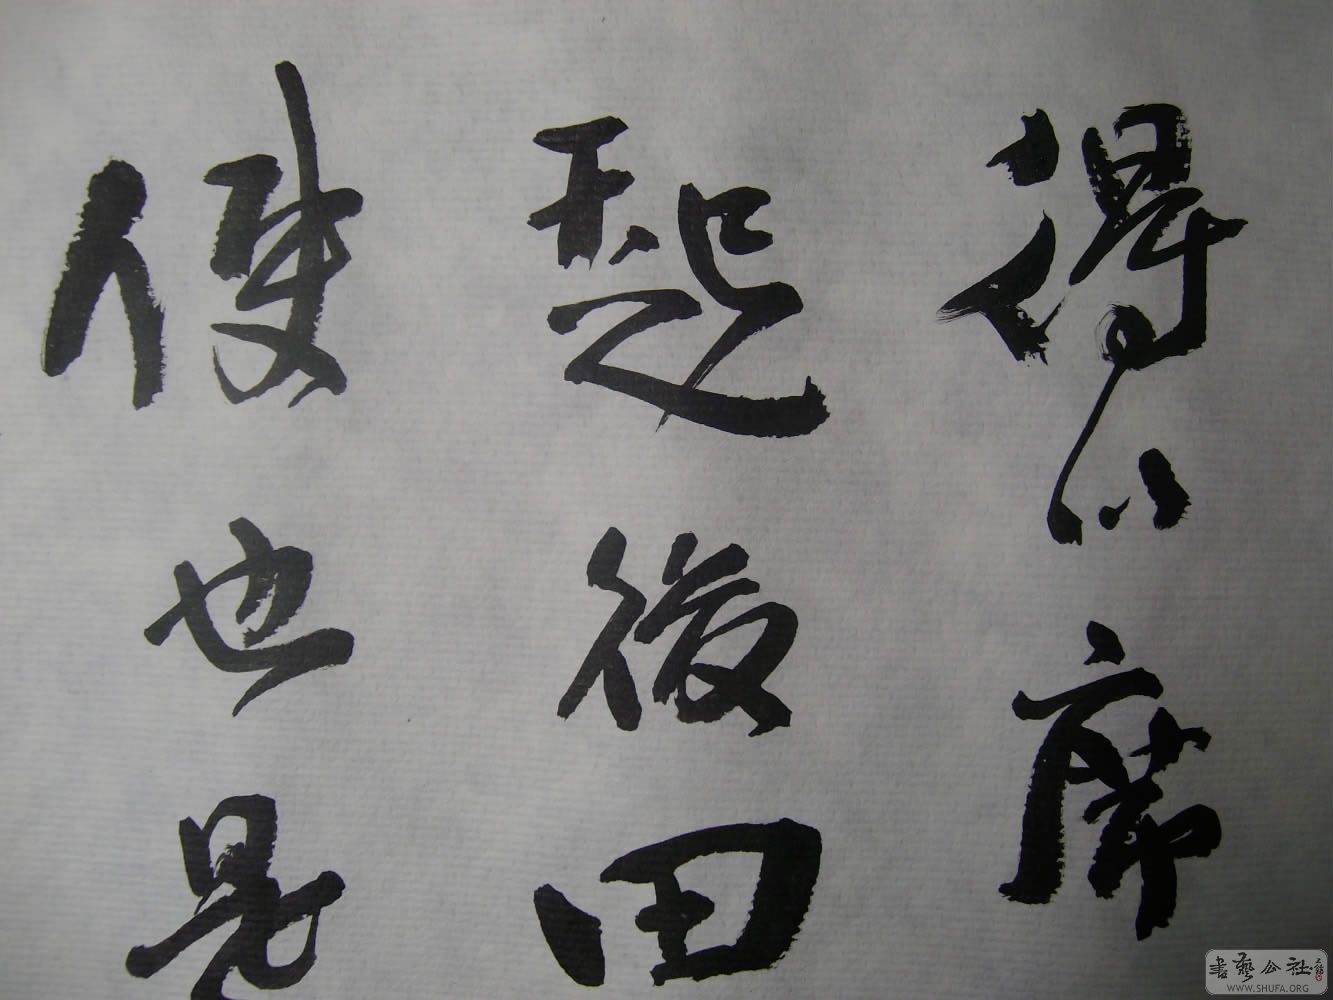 得以席
起後田
使也是
書藝公社
WWW.SHUFA.ORG